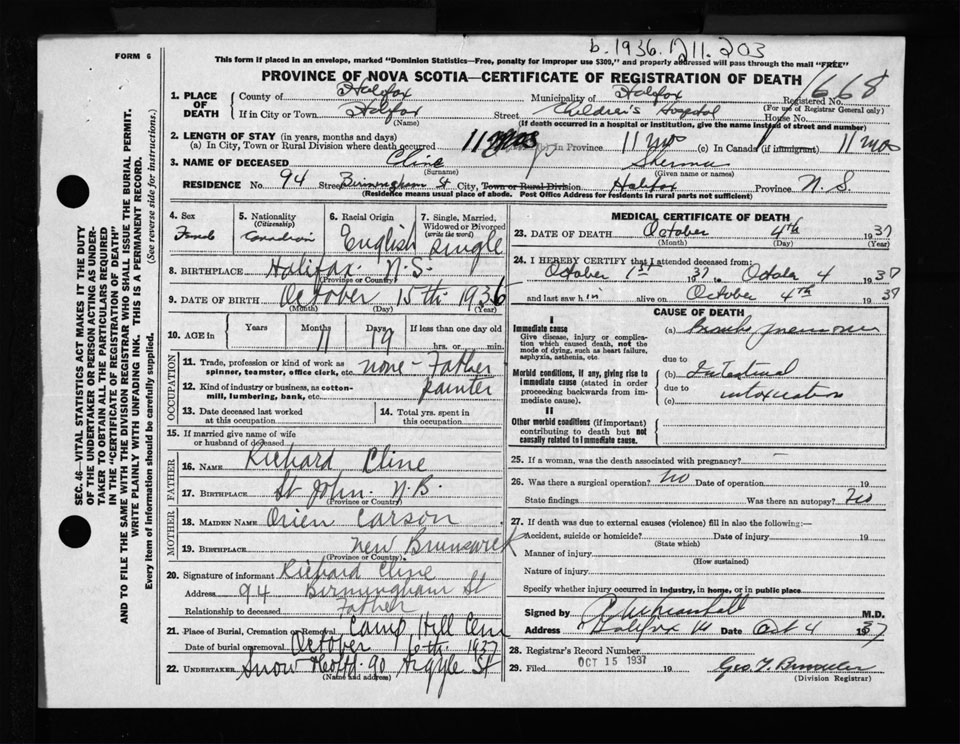 b. 1936. 1211. 203
FORM 6
This form if placed in an envelope, marked "Dominion Statistics—Free, penalty for improper use $300," and properly addressed will pass through the mail "FREE"
PROVINCE OF NOVA SCOTIA—CERTIFICATE OF REGISTRATION OF DEATH
1. PLACE OF DEATH
County of Halifax Municipality of Halifax Registered No. 1668
(For use of Registrar General only)
If in City or Town Halifax Street Children's Hospital House No.
(Name) (If death occurred in a hospital or institution, give the name instead of street and number)
2. LENGTH OF STAY (in years, months and days)
(a) In City, Town or Rural Division where death occurred 11 mos (b) in Province 11 mo (c) In Canada (if immigrant) 11 mos
3. NAME OF DECEASED Cline
(Surname) (Given name or names)
RESIDENCE No. 94 Street Birmingham St City, Town or Rural Division Halifax Province N. S.
(Residence means usual place of abode. Post Office Address for residents in rural parts not sufficient)
4. Sex
5. Nationality (Citizenship) Canadian
6. Racial Origin English
7. Single, Married, Widowed or Divorced (write the word) single
8. BIRTHPLACE Halifax N.S.
(Province or Country)
9. DATE OF BIRTH October 15th 1936
(Month) (Day) (Year)
10. AGE in Years Months 11 Days 19 If less than one day old hrs. or min.
OCCUPATION
11. Trade, profession or kind of work as spinner, teamster, office clerk, etc. none - Father
12. Kind of industry or business, as cotton-mill, lumbering, bank, etc. painter
13. Date deceased last worked at this occupation
14. Total yrs. spent in this occupation
15. If married give name of wife or husband of deceased
FATHER
16. NAME Richard Cline
17. BIRTHPLACE St John. N.B.
(Province or Country)
MOTHER
18. MAIDEN NAME Carson
19. BIRTHPLACE New Brunswick
(Province or Country)
20. Signature of informant Richard Cline
Address 94 Birmingham St
Relationship to deceased Father
21. Place of Burial, Cremation or Removal Camp Hill Cem
Date of burial or removal October 6th 1937
22. UNDERTAKER Snow 90 Argyle St
(Name and address)
MEDICAL CERTIFICATE OF DEATH
23. DATE OF DEATH October 4th 1937
(Month) (Day) (Year)
24. I HEREBY CERTIFY that I attended deceased from:
October 1st 1937 to October 4 1937
and last saw h im alive on October 4th 1937
CAUSE OF DEATH
I
Immediate cause
Give disease, injury or complication which caused death, not the mode of dying, such as heart failure, asphyxia, asthenia, etc.
(a) Broncho pneumonia
due to
Morbid conditions, if any, giving rise to immediate cause (stated in order proceeding backwards from immediate cause).
(b) Intestinal
due to intoxication
(c)
II
Other morbid conditions (if important) contributing to death but not causally related to immediate cause.
25. If a woman, was the death associated with pregnancy? —
26. Was there a surgical operation? no Date of operation 19
State findings Was there an autopsy? no
27. If death was due to external causes (violence) fill in also the following:—
Accident, suicide or homicide? Date of injury 19
(State which)
Manner of injury
(How sustained)
Nature of injury
Specify whether injury occurred in industry, in home, or in public place
Signed by M.D.
Address Halifax Date Oct 4 1937
28. Registrar's Record Number
29. Filed OCT 15 1937 19 Geo. T.
(Division Registrar)
SEC. 46—VITAL STATISTICS ACT MAKES IT THE DUTY OF THE UNDERTAKER OR PERSON ACTING AS UNDERTAKER TO OBTAIN ALL THE PARTICULARS REQUIRED IN THE "CERTIFICATE OF REGISTRATION OF DEATH" AND TO FILE THE SAME WITH THE DIVISION REGISTRAR WHO SHALL ISSUE THE BURIAL PERMIT.
WRITE PLAINLY WITH UNFADING INK. THIS IS A PERMANENT RECORD.
Every item of information should be carefully supplied. (See reverse side for instructions.)